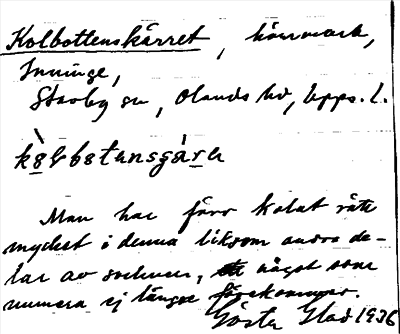 Kolbottenskärret, kärrmark,
Inninge,
Stavby sn, Olands hd, Upps. l.
kòlbotənsçä̀rə
Man har förr kolat rätt
mycket i denna liksom andra de-
lar av socknen, något som
numera ej längre förekommer.
Gösta Glad 1936